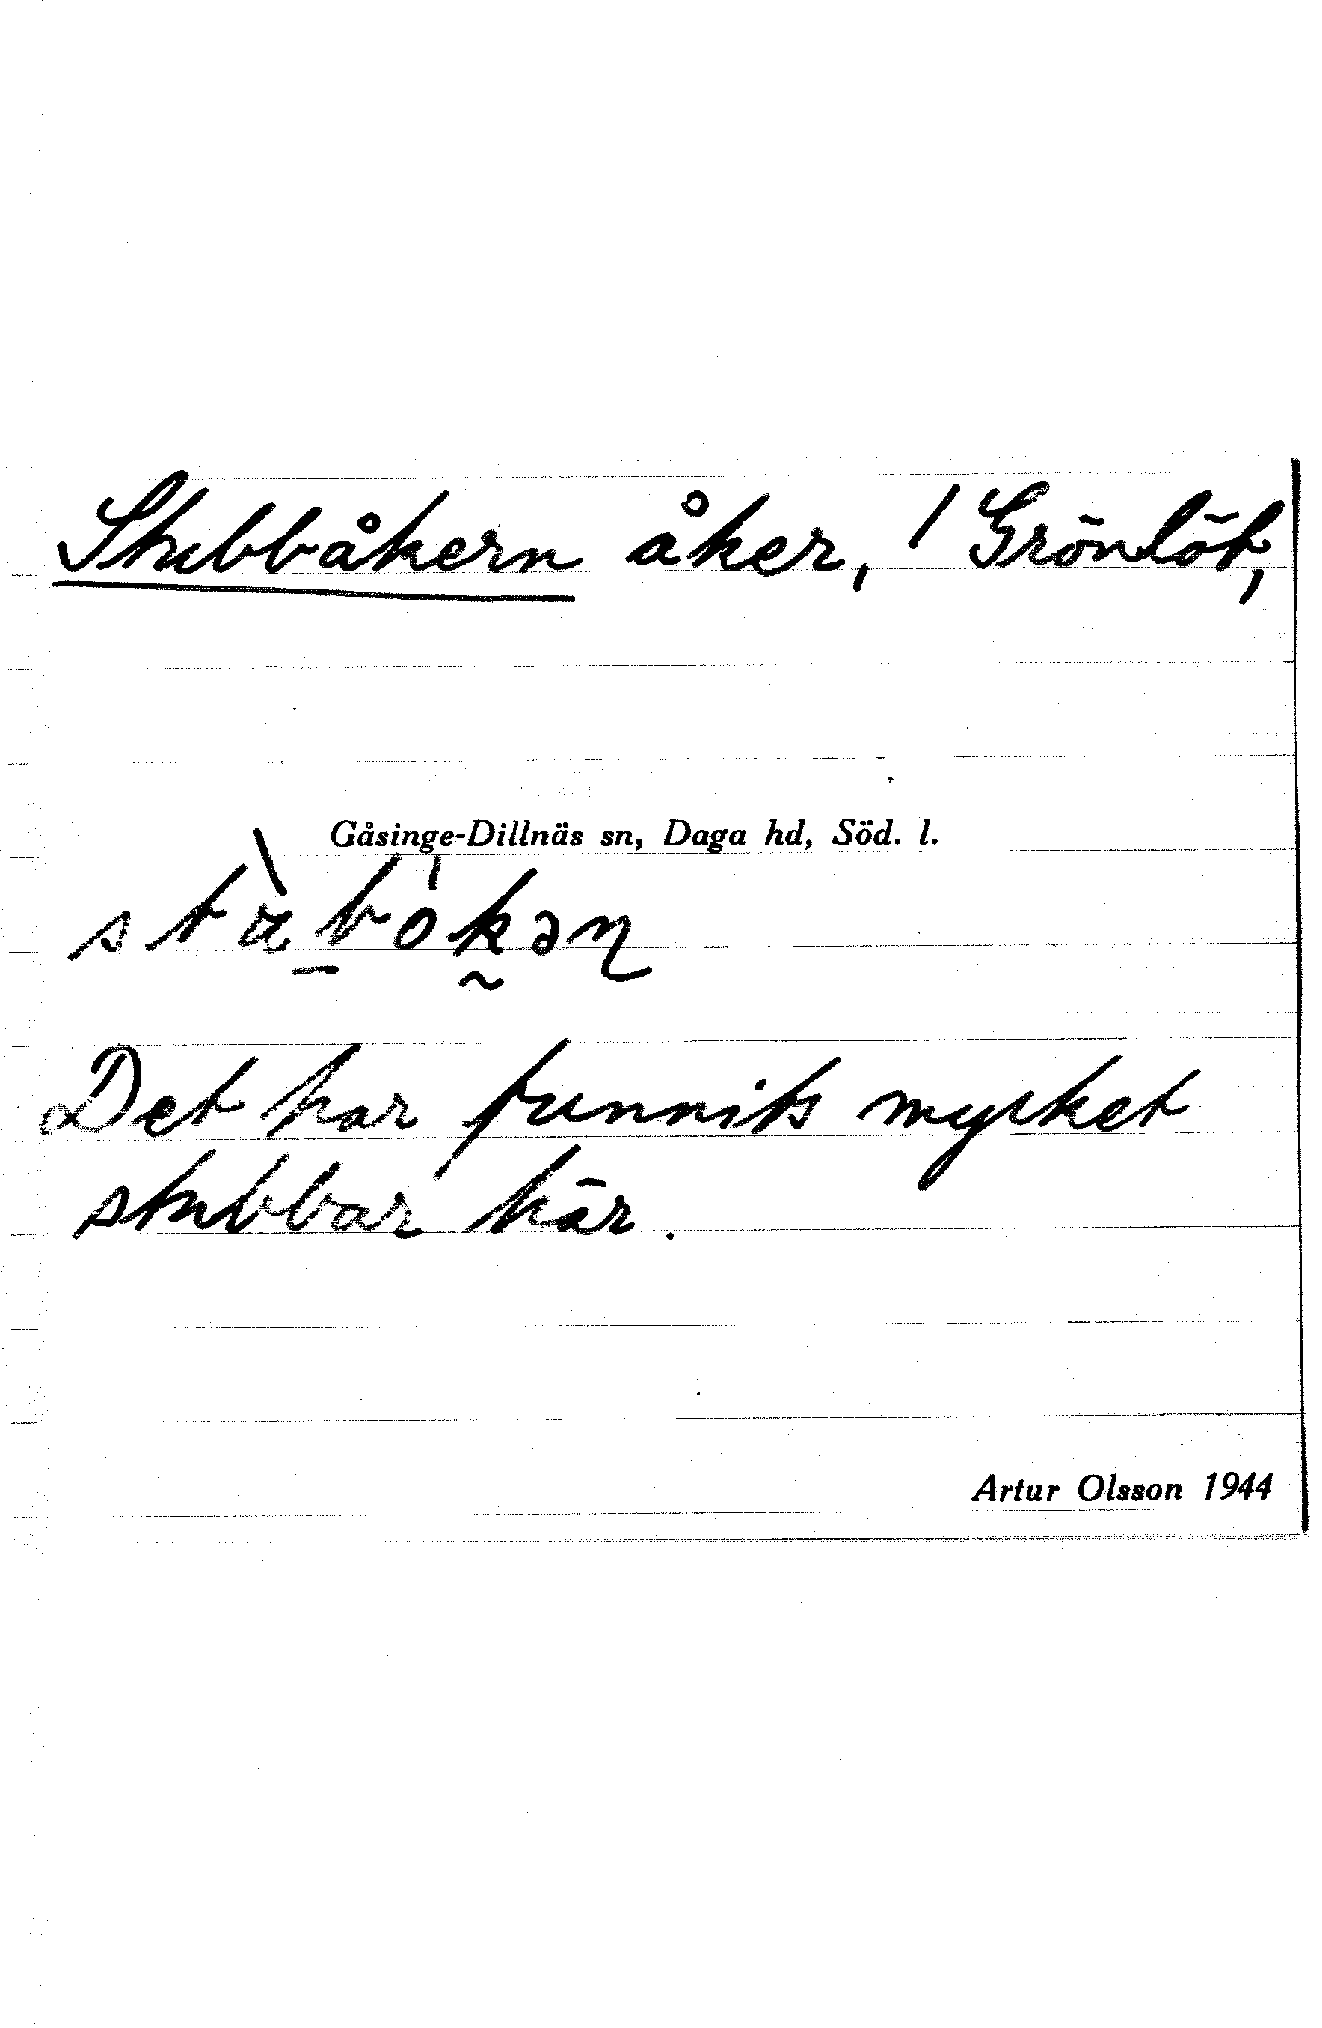 Stubbåkern åker, / Grönlöt,
Gåsinge-Dillnäs sn, Daga hd, Söd. l.
Det har funnits mycket
stubbar här.
Artur Olsson 1944